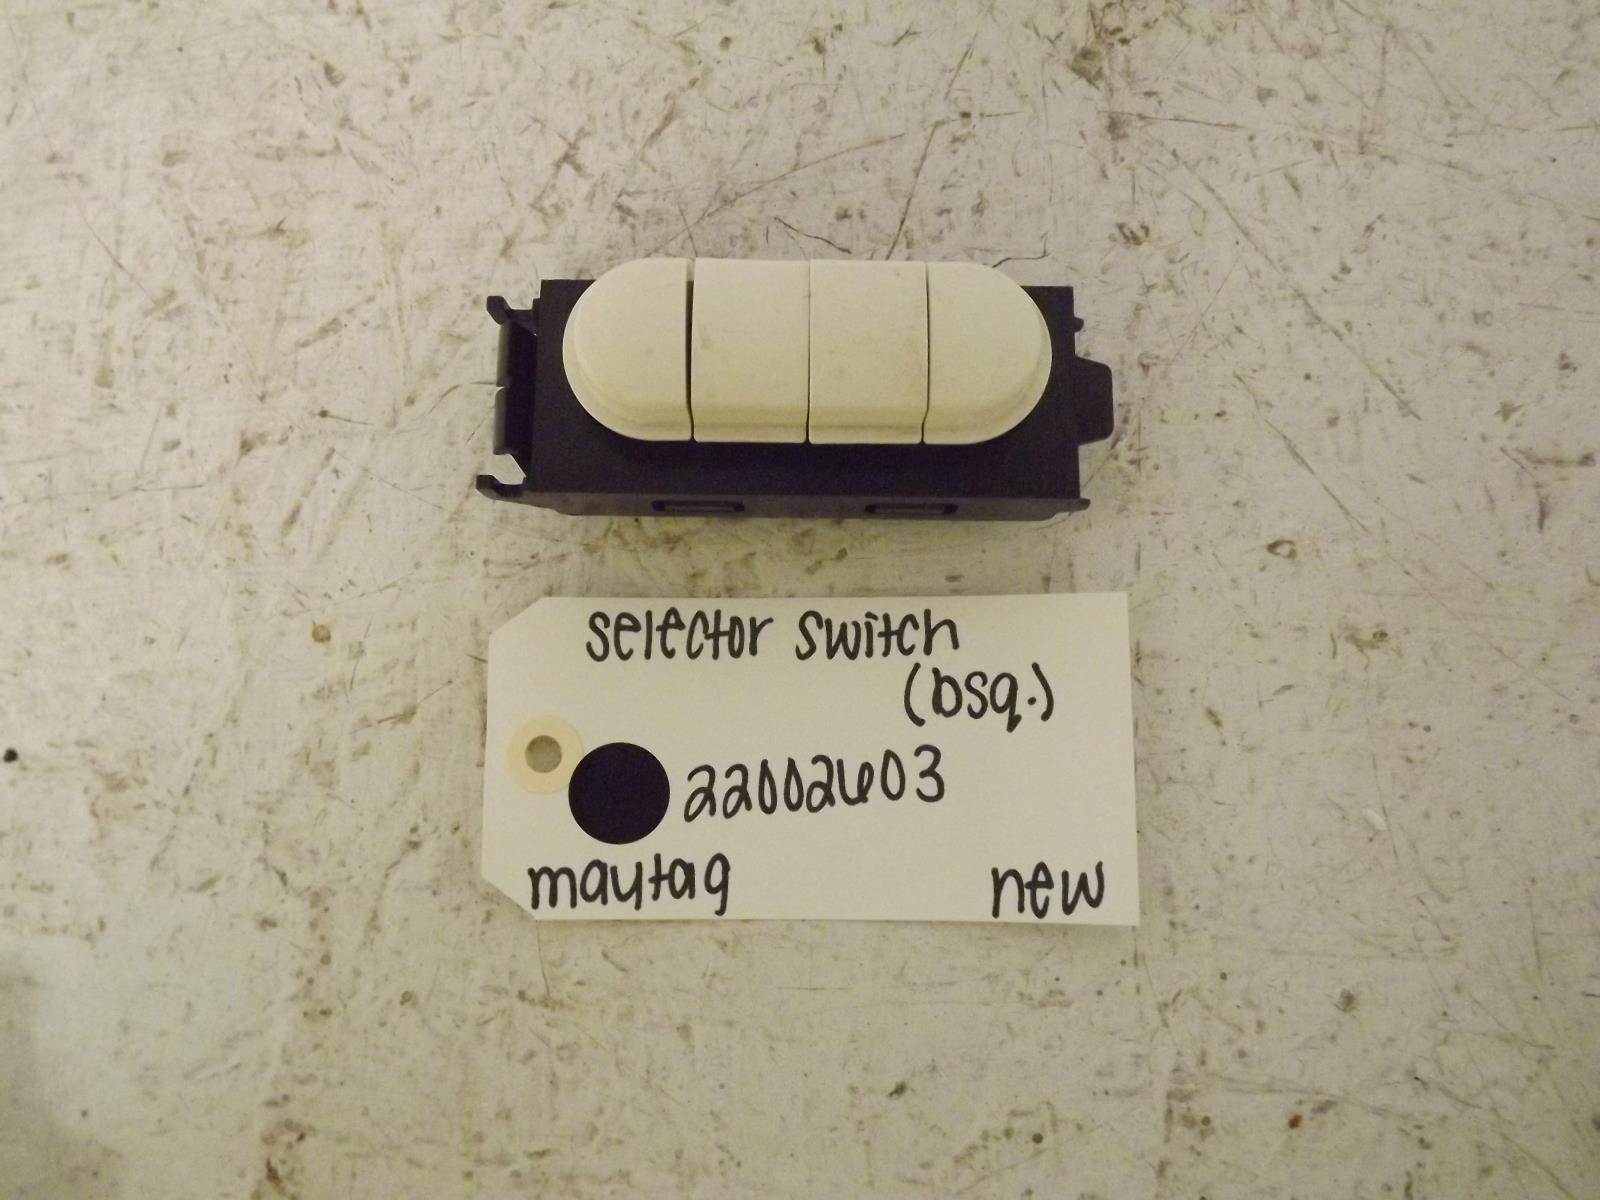 selector switch
(bsq.)
22002603
maytag new